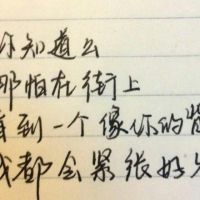 你知道么
那怕在街上
看到一个像你的背
我都会紧张好久